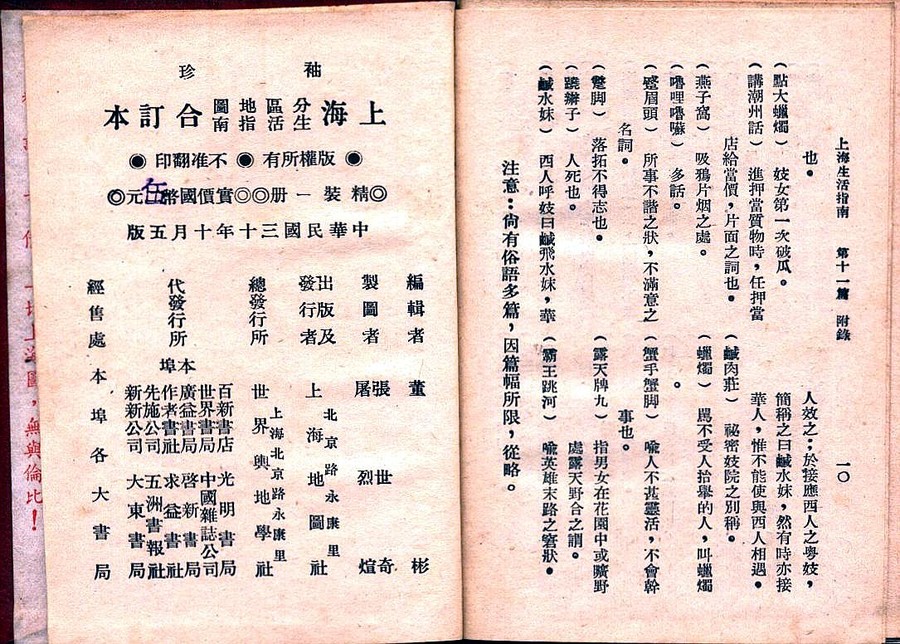 上海生活指南 第十一篇 附錄 一〇
也。
（點大蠟燭） 妓女第一次破瓜。
（講潮州話） 進押當質物時，任押當
店給當價，片面之詞也。
（燕子窩） 吸鴉片烟之處。
（嚕哩嚕囌） 多話。
（蹙眉頭） 所事不諧之狀，不滿意之
名詞。
（蹩脚） 落拓不得志也。
（蹺辮子） 人死也。
（鹹水妹） 西人呼妓曰鹹飛水妹，華
人效之；於接應西人之粵妓，
簡稱之曰鹹水妹，然有時亦接
華人，惟不能使與西人相遇。
（鹹肉莊） 祕密妓院之別稱。
（蠟燭） 罵不受人抬舉的人，叫蠟燭
。
（蟹手蟹脚） 喻人不甚靈活，不會幹
事也。
（露天牌九） 指男女在花園中或曠野
處露天野合之謂。
（霸王跳河） 喻英雄末路之窘狀。
注意：尚有俗語多篇，因篇幅所限，從略。
袖珍
上海分區地圖生活指南合訂本
◉版權所有◉不准翻印◉
◎精裝一册◎◎實價國幣伍元◎
中華民國三十年十月五版
編輯者 董世彬
製圖者 張奇
屠烈煊
出版及發行者 上海地圖社
北京路永康里
總發行所 世界輿地學社
上海北京路永康里
代發行所 本埠
百新書店 光明書局
世界書局 中國雜誌公司
廣益書局 啓新書局
作者書社 求益書社
先施公司 五洲書報社
新新公司 大東書局
經售處 本埠各大書局
圖，無與倫比！